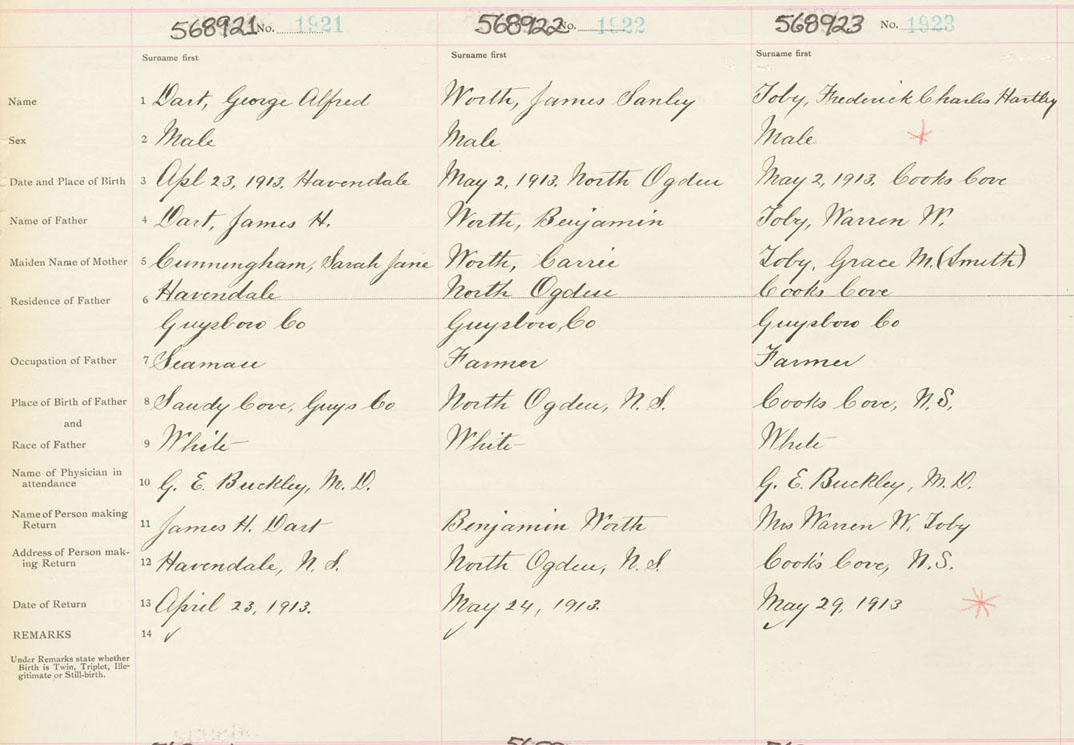 568921 No. 1921 568922 No. 1922 568923 No. 1923
Surname first Surname first Surname first
Name 1 Dart, George Alfred Worth, James Sanley Toby, Frederick Charles Hartley
Sex 2 Male Male Male
Date and Place of Birth 3 Apl 23, 1913. Havendale May 2, 1913. North Ogden May 2, 1913. Cooks Cove
Name of Father 4 Dart, James H. Worth, Benjamin Toby, Warren W.
Maiden Name of Mother 5 Cunningham, Sarah Jane Worth, Carrie Toby, Grace M. (Smith)
Residence of Father 6 Havendale North Ogden Cooks Cove
Guysboro Co Guysboro, Co Guysboro Co
Occupation of Father 7 Seaman Farmer Farmer
Place of Birth of Father 8 Sandy Cove, Guys Co North Ogden, N.S. Cooks Cove, N.S.
and
Race of Father 9 White White White
Name of Physician in
attendance 10 G. E. Buckley, M.D. G. E. Buckley, M.D.
Name of Person making
Return 11 James H. Dart Benjamin Worth Mrs Warren W. Toby
Address of Person mak-
ing Return 12 Havendale, N.S. North Ogden, N.S. Cook's Cove, N.S.
Date of Return 13 April 23, 1913. May 24, 1913. May 29, 1913
REMARKS 14
Under Remarks state whether
Birth is Twin, Triplet, Ille-
gitimate or Still-birth.